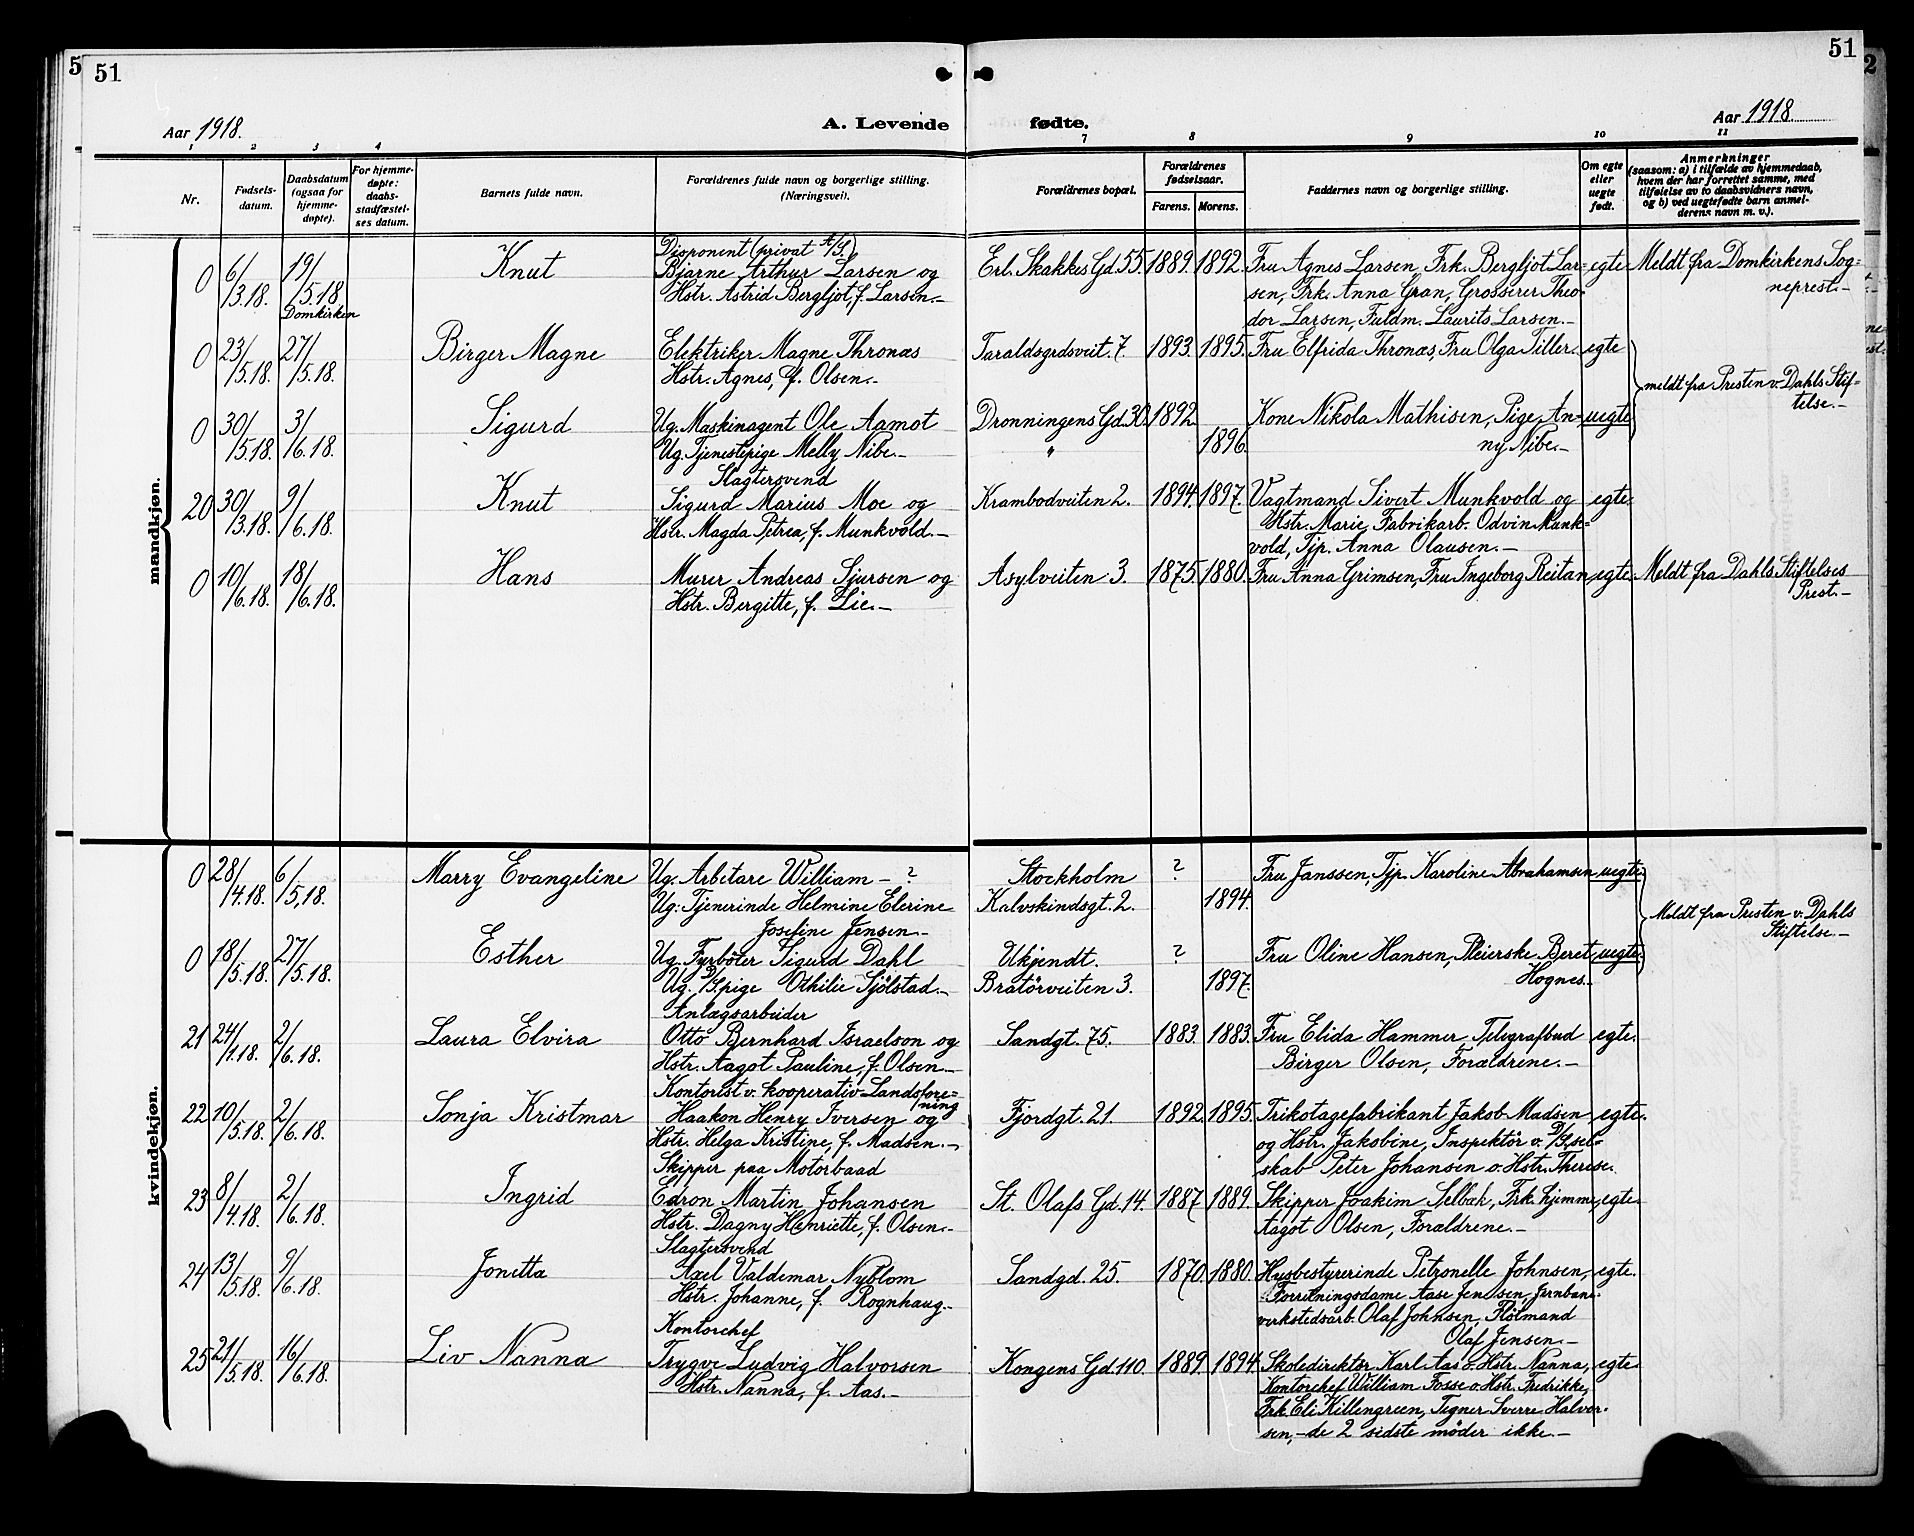 51
51
5
2
Aar 1918.
A. Levende fødte.
Aar 1918
1 2 3 4 7 8 9 10 11
Nr.
Fødsels-
datum.
Daabsdatum
(ogsaa for
hjemme-
døpte).
For hjemme-
døpte:
daabs-
stadfæstel-
ses datum.
Barnets fulde navn.
Forældrenes fulde navn og borgerlige stilling.
(Næringsvei).
Forældrenes bopæl.
Forældrenes
fødselsaar.
Farens. Morens.
Faddernes navn og borgerlige stilling.
Om egte
eller
uegte
født.
Anmerkninger
(saasom: a) i tilfælde av hjemmedaab,
hvem der har forrettet samme, med
tilføielse av to daabsvidners navn,
og b) ved uegtefødte barn anmel-
derens navn m. v.).
mandkjøn.
0 6/3.18. 19/5.18. Domkirken
Knut
Disponent (privat A/S.)
Bjarne Arthur Larsen og
Hstr. Astrid Bergljot, f. Larsen.-
Erl. Skakkes Gd. 55. 1889. 1892.
Fru Agnes Larsen, Frk. Bergljot Lar=
sen, Frk. Anna Gran, Grosserer Theo=
dor Larsen, Fuldm. Laurits Larsen.-
egte
Meldt fra Domkirkens Sog=
neprest.-
0 23/5.18. 27/5.18.
Birger Magne
Elektriker Magne Thronæs
Hstr. Agnes, f. Olsen.-
Taraldsgrdsveit. 7. 1893. 1895.
Fru Elfrida Thronæs, Fru Olga Tiller.
egte
meldt fra Presten v. Dahls Stif=
telse.-
0 30/5.18. 3/6.18.
Sigurd
Ug. Maskinagent Ole Aamot
Ug. Tjenestepige Melly Nibe.-
Dronningens Gd. 30. 1892.
" 1896.
Kone Nikola Mathisen, Pige An=
ny Nibe.-
uegte
20 30/3.18. 9/6.18.
Knut
Slagtersvend
Sigurd Marius Moe og
Hstr. Magda Petrea, f. Munkvold.-
Krambodveiten 2. 1894. 1897.
Vagtmand Sivert Munkvold og
Hstr. Marie, Fabrikarb. Odvin Munk=
vold, Tjp. Anna Olausen.-
egte.
0 10/6.18. 18/6.18.
Hans
Murer Andreas Sjursen og
Hstr. Bergitte, f. Lie.-
Asylveiten 3. 1875. 1880.
Fru Anna Grimsen, Fru Ingeborg Reitan
egte.
Meldt fra Dahls Stiftelses
Prest.-
kvindekjøn.
0 28/4.18. 6/5.18.
Marry Evangeline
Ug. Arbetare William - ?
Ug. Tjenerinde Helmine Elerine
Josefine Jensen.-
Stockholm ?
Kalvskindsgt. 2. 1894.
Fru Janssen, Tjp. Karoline Abrahamsen
uegte.
Meldt fra Presten v. Dahls
Stiftelse.-
0 18/5.18. 27/5.18.
Esther
Ug. Fyrbøter Sigurd Dahl
Ug. D/S.pige Othilie Sjölstad.-
Ukjendt. ?
Bratörveiten 3. 1897.
Fru Oline Hansen, Pleierske Beret
Hognes.-
uegte.
21 24/1.18. 2/6.18.
Laura Elvira
Anlægsarbeider
Otto Bernhard Israelson og
Hstr. Aagot Pauline, f. Olsen.-
Sandgt. 75. 1883. 1883.
Fru Elida Hammer, Telegrafbud
Birger Olsen, Forældrene.-
egte.
22 10/5.18. 2/6.18.
Sonja Kristmar
Kontorist v. kooperativ Landsfore=
ning
Haakon Henry Iversen og
Hstr. Helga Kristine, f. Madsen.-
Fjordgt. 21. 1892. 1895.
Trikotagefabrikant Jakob Madsen
og Hstr. Jakobine, Inspektör v. D/S.sel=
skab Peter Johansen o. Hstr. Therese.
egte.
23 8/4.18. 2/6.18.
Ingrid
Skipper paa Motorbaad
Edron Martin Johansen
Hstr. Dagny Henriette, f. Olsen.-
St. Olafs Gd. 14. 1887. 1889.
Skipper Joakim Selbæk, Frk. hjemme
Aagot Olsen, Forældrene.-
egte.
24 13/5.18. 9/6.18.
Jonetta
Slagtersvend
Axel Valdemar Nyblom
Hstr. Johanne, f. Rognhaug.-
Sandgd. 25. 1870. 1880.
Husbestyrerinde Petronelle Johnsen,
Forretningsdame Aase Jensen, Jernbane-
verkstedsarb. Olaf Johnsen, Flötmand
Olaf Jensen.-
egte.
25 21/5.18. 16/6.18.
Liv Nanna
Kontorchef
Trygve Ludvig Halvorsen
Hstr. Nanna, f. Aas.-
Kongens Gd. 110. 1889. 1894.
Skoledirektör Karl Aas o. Hstr. Nanna,
Kontorchef William Fosse o. Hstr. Fredrikke,
Frk. Eli Killengreen, Tegner Sverre Halvor-
sen,-de 2 sidste möder ikke.-
egte.